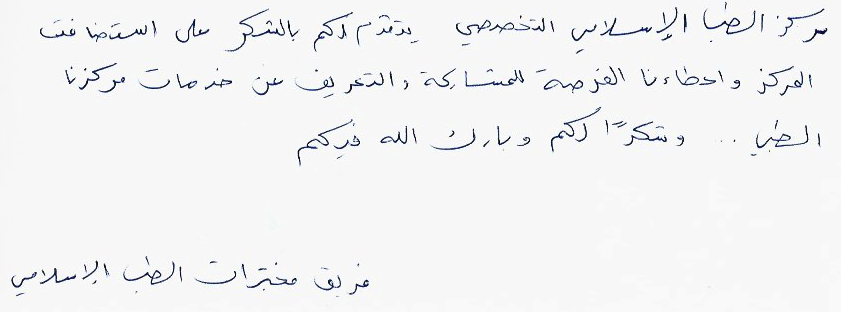 مركز الطب الإسلامي التخصصي يتقدم لكم بالشكر على استضافت
المركز واعطاءنا الفرصة للمشاركة والتعريف عن خدمات مركزنا
الطبي ... وشكراً لكم وبارك الله فيكم
فريق مختبرات الطب الإسلامي